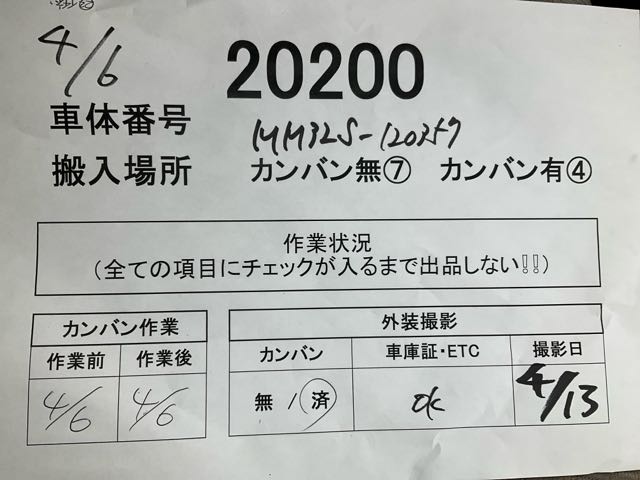 4/6
20200
車体番号 MM32S-120357
搬入場所 カンバン無⑦ カンバン有④
作業状況
(全ての項目にチェックが入るまで出品しない!!)
カンバン作業 外装撮影
作業前 作業後 カンバン 車庫証・ETC 撮影日
4/6 4/6 無 / 済 ok 4/13